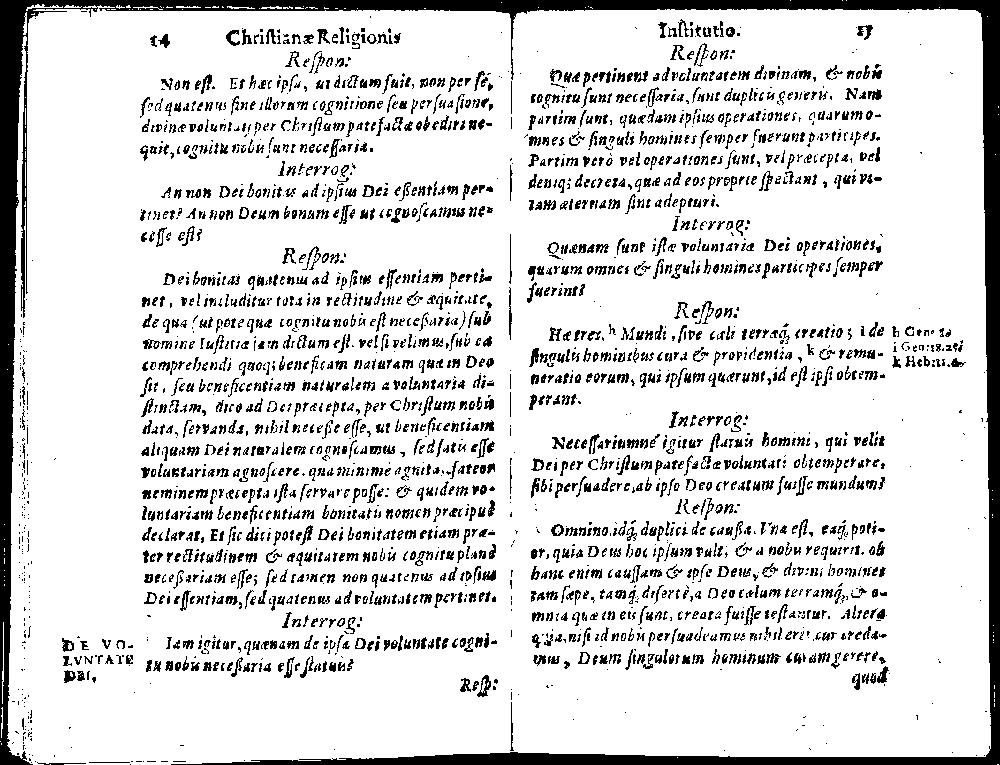 14 Christianæ Religionis
Respon:
Non est. Et hæc ipsa, ut dictum fuit, non per se,
sed quatenus sine illorum cognitione seu persuasione,
divinæ voluntati per Christum patefactæ obediri ne-
quit, cognitu nobis sunt necessaria.
Interrog:
An non Dei bonitas ad ipsius Dei essentiam per-
tinet? An non Deum bonum esse ut cognoscamus ne-
cesse est?
Respon:
Dei bonitas quatenus ad ipsius essentiam perti-
net, vel includitur tota in rectitudine & æquitate,
de qua (utpote quæ cognitu nobis est necessaria) sub
nomine Iustitiæ jam dictum est. vel si velimus, sub ea
comprehendi quoq; beneficam naturam quæ in Deo
sit, seu beneficentiam naturalem a voluntaria di-
stinctam, dico ad Dei præcepta, per Christum nobis
data, servanda, nihil necesse esse, ut beneficentiam
aliquam Dei naturalem cognoscamus, sed satis esse
voluntariam agnoscere. qua minime agnita, fateor
neminem præcepta ista servare posse: & quidem vo-
luntariam beneficentiam bonitatis nomen præcipuè
declarat. Et sic dici potest Dei bonitatem etiam præ-
ter rectitudinem & æquitatem nobis cognitu planè
necessariam esse; sed tamen non quatenus ad ipsius
Dei essentiam, sed quatenus ad voluntatem pertinet.
Interrog:
DE VO-
LVNTATE
DEI.
Iam igitur, quænam de ipsa Dei voluntate cogni-
tu nobis necessaria esse statuis?
Resp:
Institutio. 15
Respon:
Quæ pertinent ad voluntatem divinam, & nobis
cognitu sunt necessaria, sunt duplicis generis. Nam
partim sunt, quædam ipsius operationes, quarum o-
mnes & singuli homines semper fuerunt participes.
Partim verò vel operationes sunt, vel præcepta, vel
deniq; decreta, quæ ad eos proprie spectant, qui vi-
tam æternam sint adepturi.
Interrog:
Quænam sunt istæ voluntariæ Dei operationes,
quarum omnes & singuli homines participes semper
fuerint?
Respon:
Hæ tres. h Mundi, sive cæli terræq; creatio; i de
singulis hominibus cura & providentia, k & remu-
neratio eorum, qui ipsum quærunt, id est ipsi obtem-
perant.
h Gene: 1.
k Hebr: 11.6.
Interrog:
Necessariumné igitur statuis homini, qui velit
Dei per Christum patefactæ voluntati obtemperare,
sibi persuadere, ab ipso Deo creatum fuisse mundum?
Respon:
Omnino. idq; duplici de caussa. Vna est, eaq; poti-
or, quia Deus hoc ipsum vult, & a nobis requirit. ob
hanc enim caussam & ipse Deus, & divini homines
tam sæpe, tamq; disertè, a Deo cælum terramq;, & o-
mnia quæ in eis sunt, creata fuisse testantur. Altera
quia, nisi id nobis persuadeamus nihil erit, cur creda-
mus, Deum singulorum hominum curam gerere,
quod